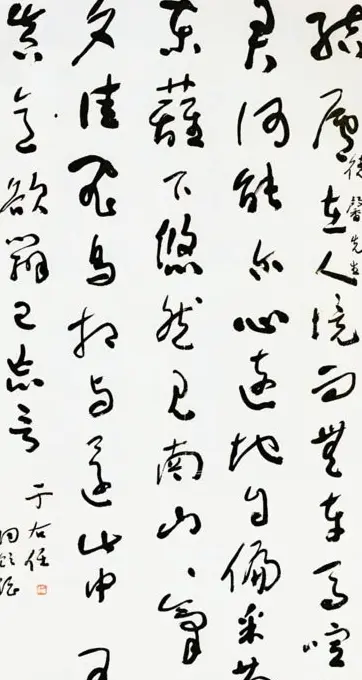 結廬在人境而無車馬喧
馨先生
君何能爾心遠地自偏采菊
東籬下悠然見南山、氣
夕佳飛鳥相與還此中有
真意欲辨已忘言
于右任